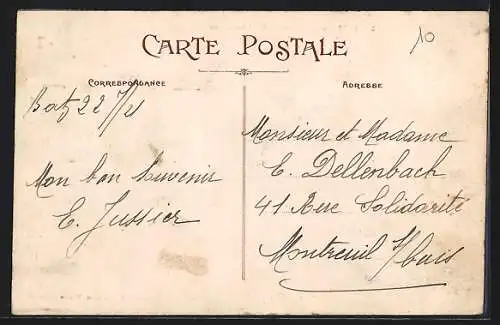 10
CARTE POSTALE
CORRESPONDANCE
Batz 22/7/21
Mon bon Souvenir
E. Jussier
ADRESSE
Monsieur et Madame
E. Dellenbach
41 Rue Solidarité
Montreuil s/bois